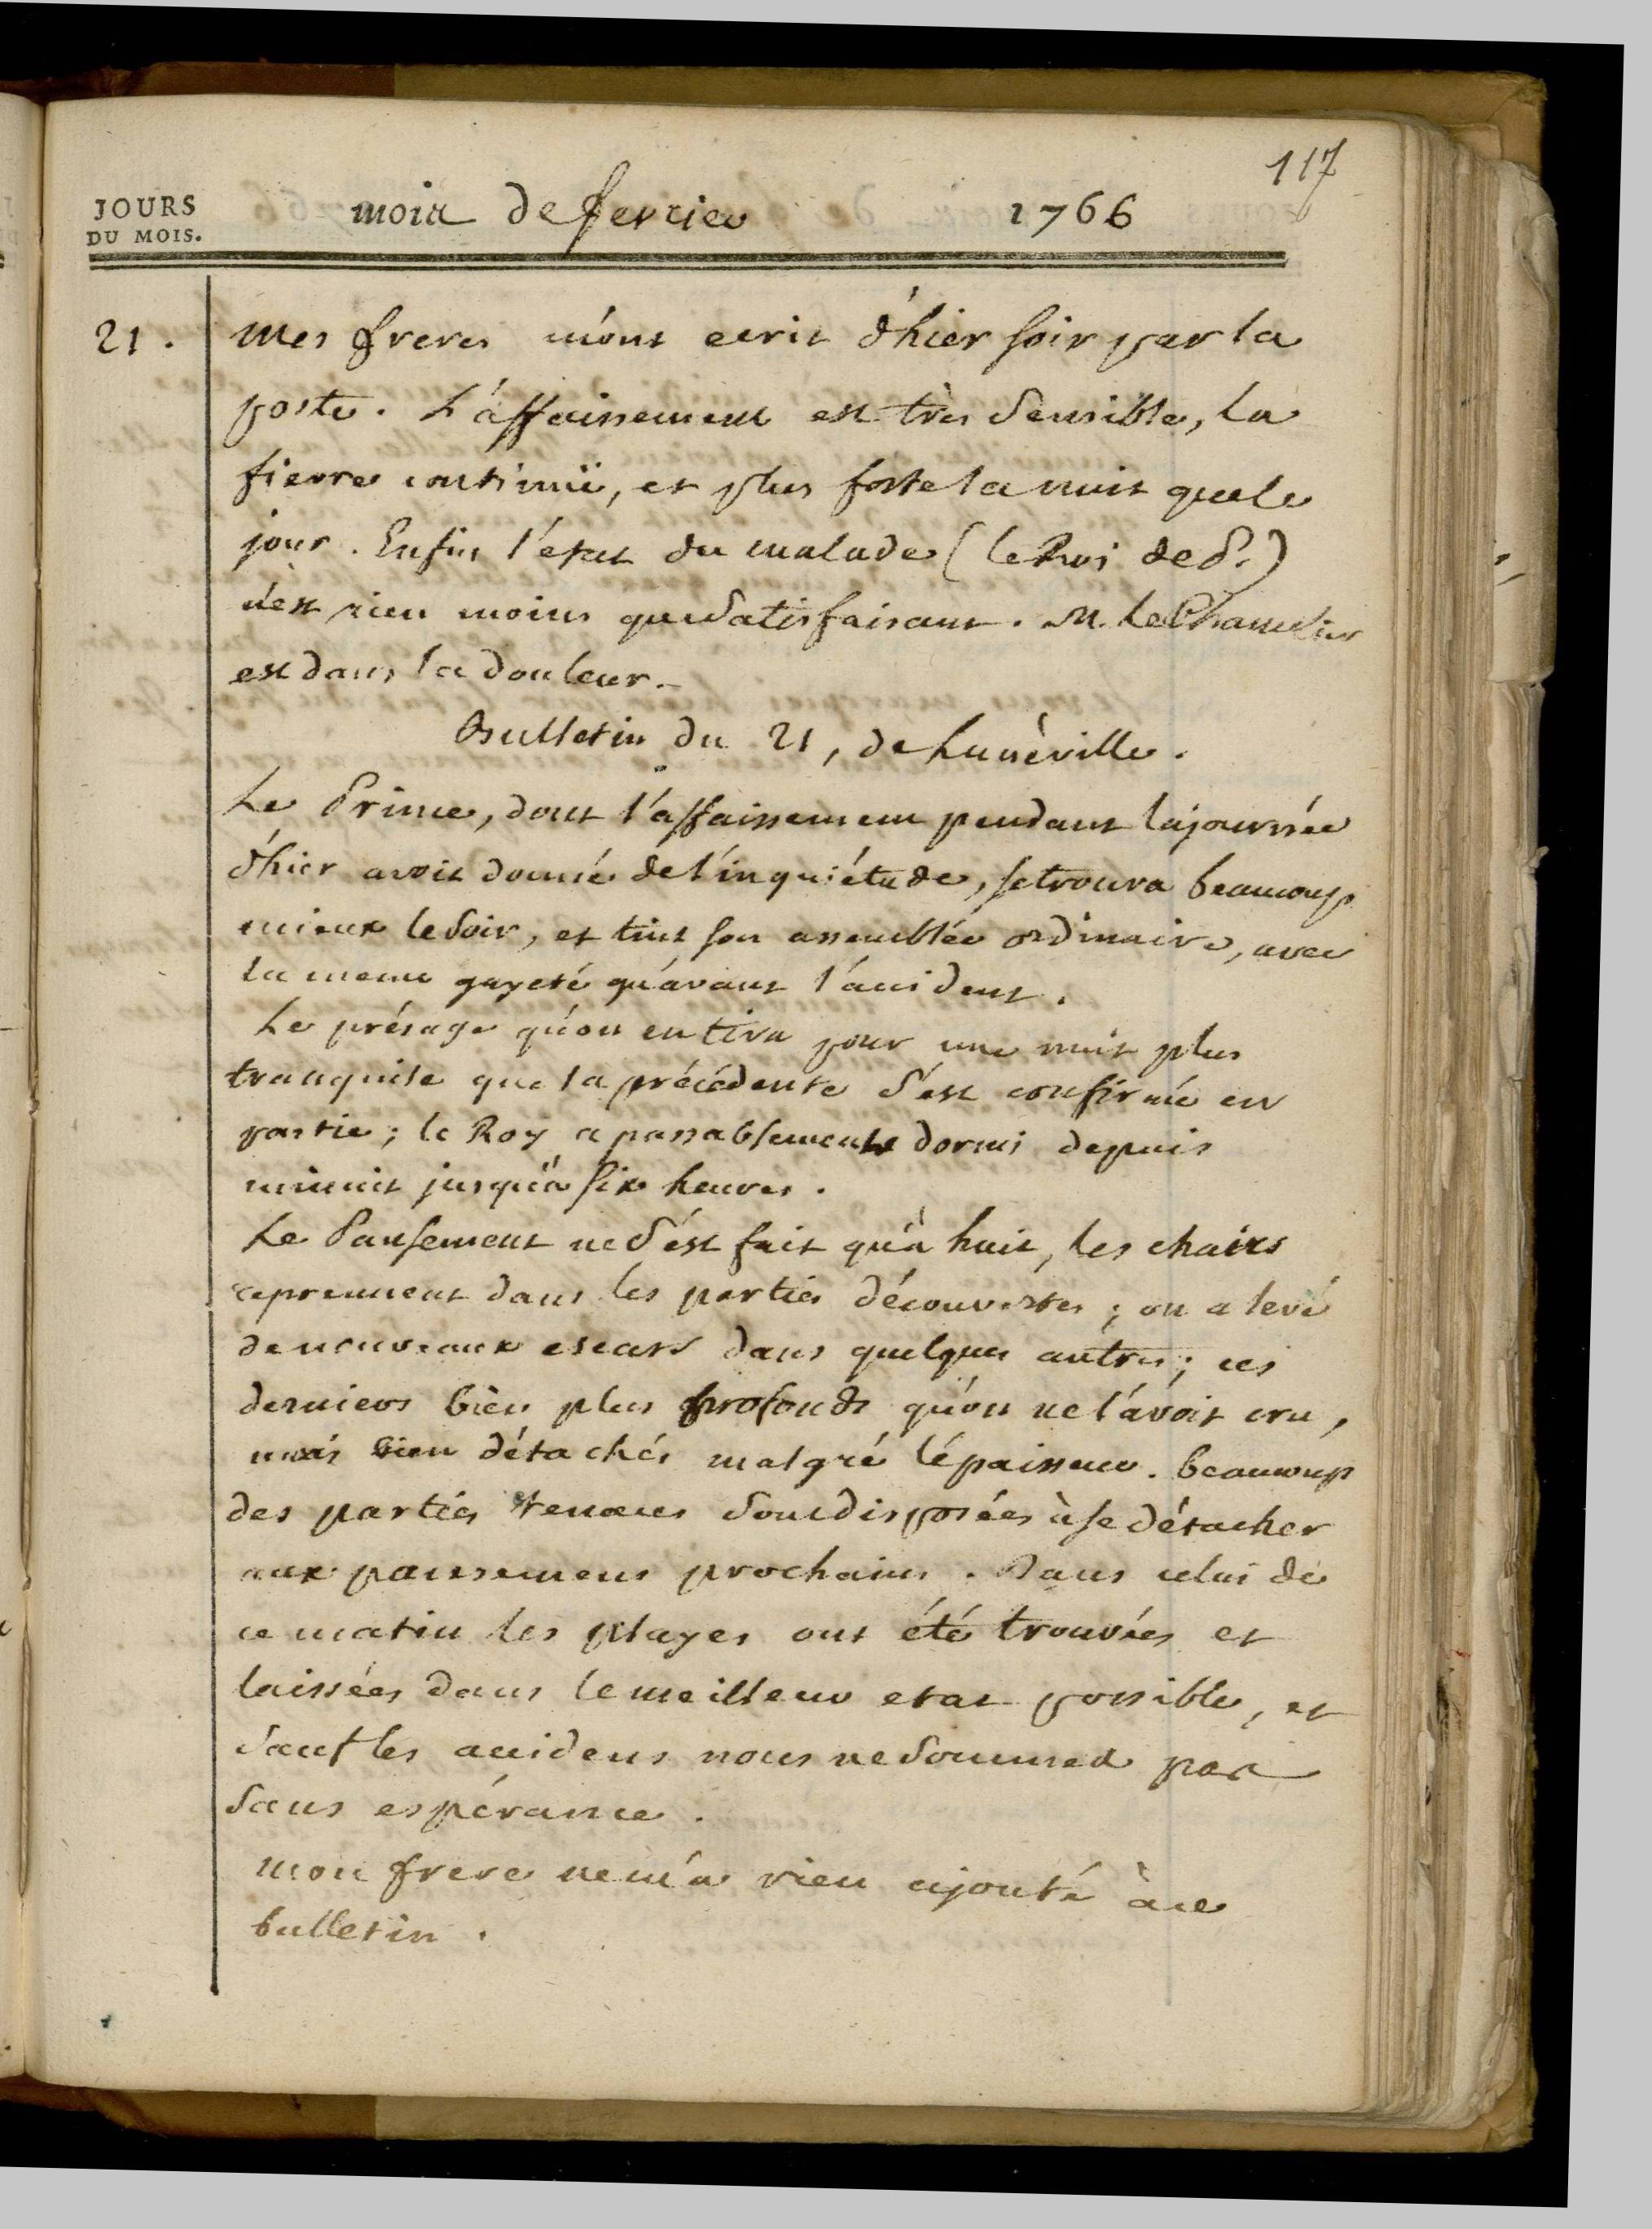 117
JOURS DU MOIS.
mois de fevrier 1766
21. mes freres m'ont ecrit d'hier soir par la
poste. L'affaissement est très sensible, la
fievre continuë, et plus forte la nuit que le
jour. Enfin l'etat du malade (le Roi de P.)
n'est rien moins que satisfaisant. M. le Chancelier
est dans la douleur.
Bulletin du 21, de Lunéville.
Le Prince, dont l'affaissement pendant la journée
d'hier avoit donné de l'inquiétude, se trouva beaucoup
mieux le soir, et tint son assemblée ordinaire, avec
la meme gayeté qu'avant l'accident.
Le présage qu'on en tira pour une nuit plus
tranquile que la précédente s'est confirmé en
partie; le Roy a passablement dormi depuis
minuit jusqu'à six heures.
Le Pansement ne s'est fait qu'à huit, les chairs
reprennent dans les parties découvertes; on a levé
de nouveaux escars dans quelques autres; ces
derniers bien plus profonds qu'on ne l'avoit cru,
mais bien détachés malgré l'épaisseur. beaucoup
des parties sont disposées à se détacher
aux pansemens prochains. Dans celui de
ce matin les playes ont été trouvées et
laissées dans le meilleur etat possible, et
sauf les accidens nous ne sommes pas
sans espérance.
mon frere ne m'a rien ajouté à ce
bulletin.